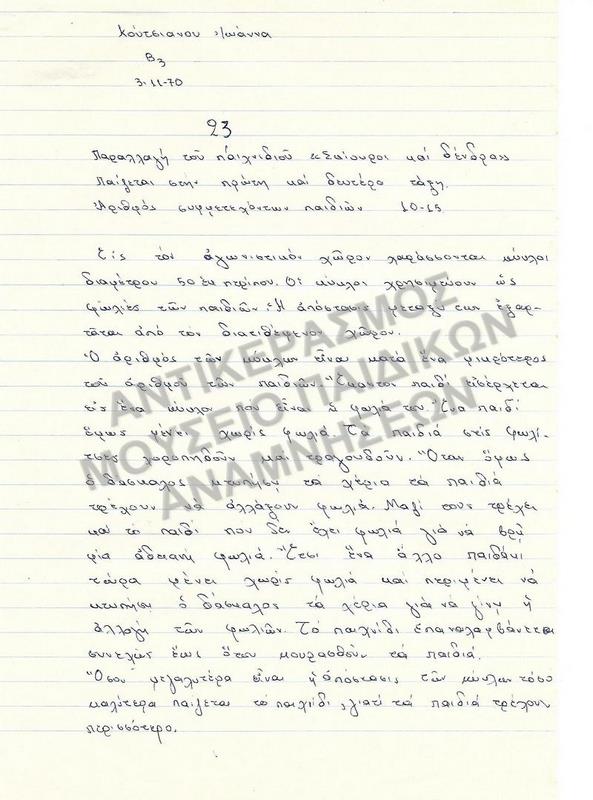 Κουτσιανου Ἰωάννα
Β3
3-11-70
23
Παραλλαγή τοῦ παιχνιδιοῦ «Σκίουροι καί δένδρα»
Παίζεται στήν πρώτη καί δευτέρα τάξη.
Ἀριθμός συμμετεχόντων παιδιῶν 10-15
Εἰς τόν ἀγωνιστικόν χῶρον χαράσσονται κύκλοι
διαμέτρου 50 ἑκ περίπου. Οἱ κύκλοι χρησιμεύουν ὡς
φωλιές τῶν παιδιῶν. Ἡ ἀπόστασις μεταξύ των ἐξαρ-
τᾶται ἀπό τόν διατιθέμενον χῶρον.
Ὁ ἀριθμός τῶν κύκλων εἶναι κατά ἕνα μικρότερος
τοῦ ἀριθμοῦ τῶν παιδιῶν. Ἕκαστον παιδί εἰσέρχεται
εἰς ἕνα κύκλον που εἶναι ἡ φωλιά του. Ἕνα παιδί
ὅμως μένει χωρίς φωλιά. Τά παιδιά στίς φωλί-
τσες χοροπηδοῦν καί τραγουδοῦν. Ὅταν ὅμως
ὁ δάσκαλος κτυπήση τά χέρια τά παιδιά
τρέχουν νά ἀλλάξουν φωλιά. Μαζί τους τρέχει
καί τό παιδί που δέν ἔχει φωλιά γιά νά βρῆ
μία ἀδειανή φωλιά. Ἔτσι ἕνα ἄλλο παιδάκι
τώρα μένει χωρίς φωλιά καί περιμένει νά
κτυπήση ὁ δάσκαλος τά χέρια γιά νά γίνη ἡ
ἀλλαγή τῶν φωλιῶν. Τό παιχνίδι ἐπαναλαμβάνεται
συνεχῶς ἕως ὅτου κουρασθοῦν τά παιδιά.
Ὅσον μεγαλυτέρα εἶναι ἡ ἀπόστασις τῶν κύκλων τόσο
καλύτερα παίζεται τό παιχνίδι, γιατί τά παιδιά τρέχουν
περισσότερο.
ΑΝΤΙΚΕΡΑΣΜΟΣ
ΜΟΥΣΕΙΟ ΠΑΙΔΙΚΩΝ
ΑΝΑΜΝΗΣΕΩΝ